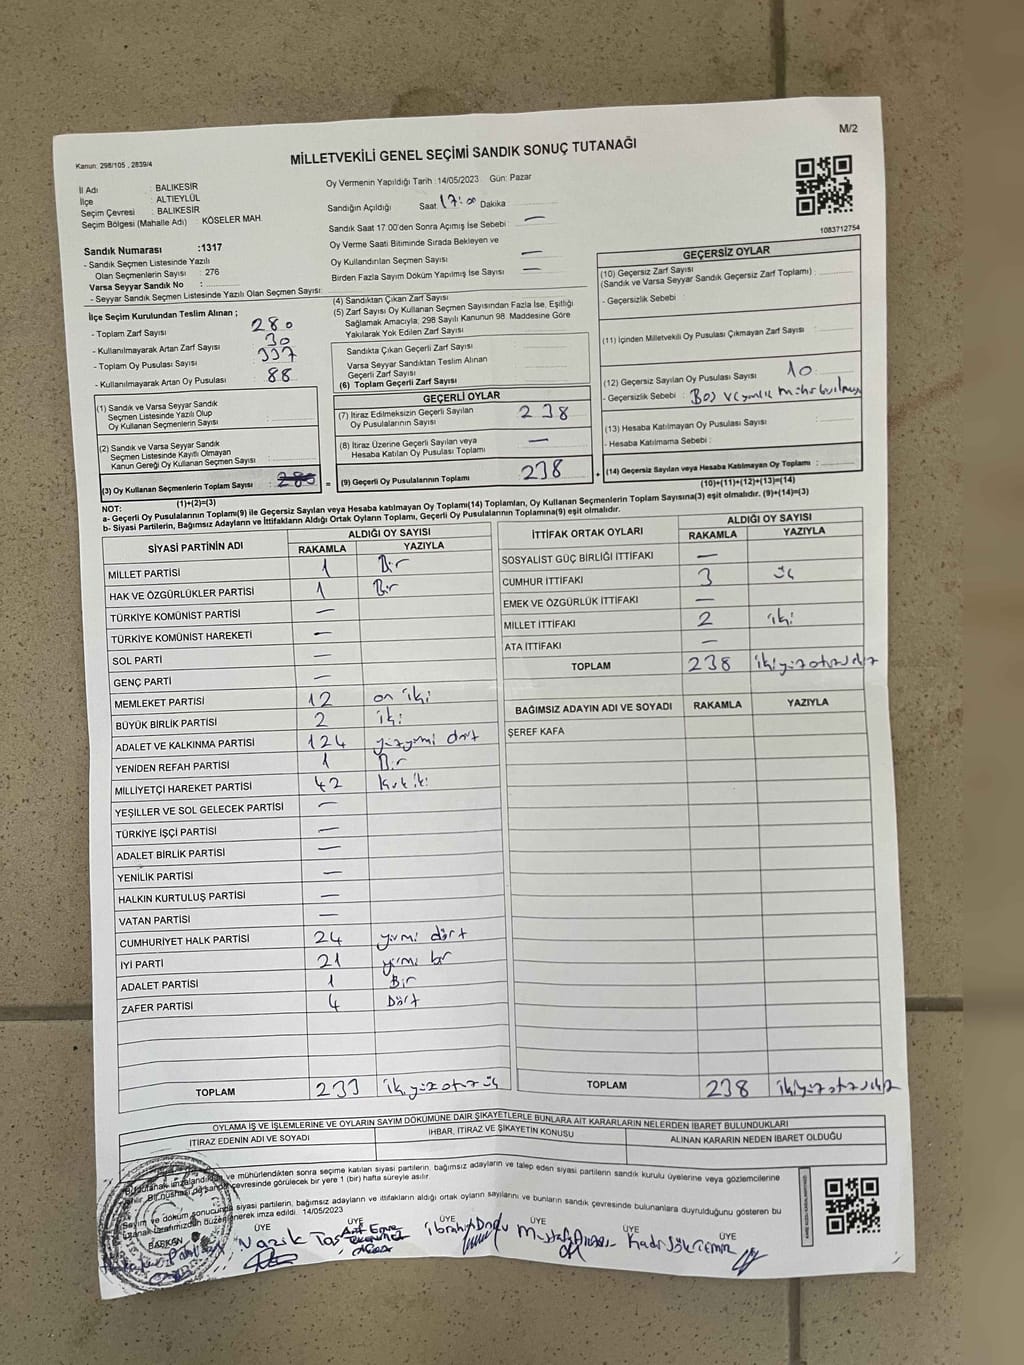 M/2
Kanun: 298/105 , 2839/4
MİLLETVEKİLİ GENEL SEÇİMİ SANDIK SONUÇ TUTANAĞI
İl Adı : BALIKESİR
İlçe : ALTIEYLÜL
Seçim Çevresi : BALIKESİR
Seçim Bölgesi (Mahalle Adı) : KÖSELER MAH.
Sandık Numarası :1317
- Sandık Seçmen Listesinde Yazılı
Olan Seçmenlerin Sayısı : 276
Varsa Seyyar Sandık No :
- Seyyar Sandık Seçmen Listesinde Yazılı Olan Seçmen Sayısı:
Oy Vermenin Yapıldığı Tarih :14/05/2023 Gün: Pazar
Sandığın Açıldığı Saat 17:00 Dakika
Sandık Saat 17.00'den Sonra Açımış İse Sebebi : —
Oy Verme Saati Bitiminde Sırada Bekleyen ve
Oy Kullandırılan Seçmen Sayısı : —
Birden Fazla Sayım Döküm Yapılmış İse Sayısı : —
1083712754
İlçe Seçim Kurulundan Teslim Alınan ;
- Toplam Zarf Sayısı : 280
- Kullanılmayarak Artan Zarf Sayısı : 30
- Toplam Oy Pusulası Sayısı : 337
- Kullanılmayarak Artan Oy Pusulası : 88
(1) Sandık ve Varsa Seyyar Sandık
Seçmen Listesinde Yazılı Olup
Oy Kullanan Seçmenlerin Sayısı :
(2) Sandık ve Varsa Seyyar Sandık
Seçmen Listesinde Kayıtlı Olmayan
Kanun Gereği Oy Kullanan Seçmen Sayısı :
(3) Oy Kullanan Seçmenlerin Toplam Sayısı :
(1)+(2)=(3)
(4) Sandıktan Çıkan Zarf Sayısı
(5) Zarf Sayısı Oy Kullanan Seçmen Sayısından Fazla İse, Eşitliği
Sağlamak Amacıyla; 298 Sayılı Kanunun 98. Maddesine Göre
Yakılarak Yok Edilen Zarf Sayısı
Sandıkta Çıkan Geçerli Zarf Sayısı
Varsa Seyyar Sandıktan Teslim Alınan
Geçerli Zarf Sayısı
(6) Toplam Geçerli Zarf Sayısı
GEÇERLİ OYLAR
(7) İtiraz Edilmeksizin Geçerli Sayılan
Oy Pusulalarının Sayısı : 238
(8) İtiraz Üzerine Geçerli Sayılan veya
Hesaba Katılan Oy Pusulası Toplamı : —
= (9) Geçerli Oy Pusulalarının Toplamı : 238 +
GEÇERSİZ OYLAR
(10) Geçersiz Zarf Sayısı
(Sandık ve Varsa Seyyar Sandık Geçersiz Zarf Toplamı) :
- Geçersizlik Sebebi :
(11) İçinden Milletvekili Oy Pusulası Çıkmayan Zarf Sayısı :
(12) Geçersiz Sayılan Oy Pusulası Sayısı : 10
- Geçersizlik Sebebi :
(13) Hesaba Katılmayan Oy Pusulası Sayısı :
- Hesaba Katılmama Sebebi :
(14) Geçersiz Sayılan veya Hesaba Katılmayan Oy Toplamı :
(10)+(11)+(12)+(13)=(14)
NOT:
a- Geçerli Oy Pusulaları Toplamı(9) ile Geçersiz Sayılan veya Hesaba Katılmayan Oy Toplamı(14) Toplamları, Oy Kullanan Seçmenlerin Toplam Sayısına(3) eşit olmalıdır. (9)+(14)=(3)
b- Siyasi Partilerin, Bağımsız Adayların ve İttifakların Aldığı Ortak Oyların Toplamı, Geçerli Oy Pusulalarının Toplamına(9) eşit olmalıdır.
SİYASİ PARTİNİN ADI ALDIĞI OY SAYISI
RAKAMLA YAZIYLA
MİLLET PARTİSİ 1 Bir
HAK VE ÖZGÜRLÜKLER PARTİSİ 1 Bir
TÜRKİYE KOMÜNİST PARTİSİ —
TÜRKİYE KOMÜNİST HAREKETİ —
SOL PARTİ —
GENÇ PARTİ —
MEMLEKET PARTİSİ 12 on iki
BÜYÜK BİRLİK PARTİSİ 2 iki
ADALET VE KALKINMA PARTİSİ 124 yüzyirmi dört
YENİDEN REFAH PARTİSİ 1 Bir
MİLLİYETÇİ HAREKET PARTİSİ 42 kırk iki
YEŞİLLER VE SOL GELECEK PARTİSİ —
TÜRKİYE İŞÇİ PARTİSİ —
ADALET BİRLİK PARTİSİ —
YENİLİK PARTİSİ —
HALKIN KURTULUŞ PARTİSİ —
VATAN PARTİSİ —
CUMHURİYET HALK PARTİSİ 24 yirmi dört
İYİ PARTİ 21 yirmi bir
ADALET PARTİSİ 1 Bir
ZAFER PARTİSİ 4 Dört
TOPLAM 233 ikiyüz otuz üç
İTTİFAK ORTAK OYLARI ALDIĞI OY SAYISI
RAKAMLA YAZIYLA
SOSYALİST GÜÇ BİRLİĞİ İTTİFAKI —
CUMHUR İTTİFAKI 3 üç
EMEK VE ÖZGÜRLÜK İTTİFAKI —
MİLLET İTTİFAKI 2 iki
ATA İTTİFAKI —
TOPLAM 238 ikiyüz otuz sekiz
BAĞIMSIZ ADAYIN ADI VE SOYADI RAKAMLA YAZIYLA
ŞEREF KAFA
TOPLAM 238
OYLAMA İŞ VE İŞLEMLERİNE VE OYLARIN SAYIM DÖKÜMÜNE DAİR ŞİKAYETLERLE BUNLARA AİT KARARLARIN NELERDEN İBARET BULUNDUKLARI
İTİRAZ EDENİN ADI VE SOYADI İHBAR, İTİRAZ VE ŞİKAYETİN KONUSU ALINAN KARARIN NEDEN İBARET OLDUĞU
ve mühürlendikten sonra seçime katılan siyasi partilerin, bağımsız adayların ve talep eden siyasi partilerin sandık kurulu üyelerine veya gözlemcilerine
çevresinde görülecek bir yere 1 (bir) hafta süreyle asılır.
Sayım ve döküm sonucunda siyasi partilerin, bağımsız adayların ve ittifakların aldığı ortak oyların sayılarını ve bunların sandık çevresinde bulunanlara duyrulduğunu gösteren bu
tutanak tarafımızdan düzenlenerek imza edildi. 14/05/2023
BAŞKAN ÜYE ÜYE ÜYE ÜYE ÜYE
Nazik Taş